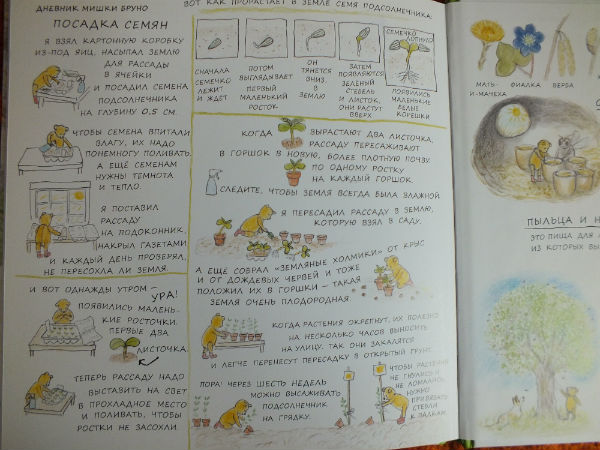 ДНЕВНИК МИШКИ БРУНО
ПОСАДКА СЕМЯН
Я ВЗЯЛ КАРТОННУЮ КОРОБКУ
ИЗ-ПОД ЯИЦ, НАСЫПАЛ ЗЕМЛЮ
ДЛЯ РАССАДЫ
В ЯЧЕЙКИ
И ПОСАДИЛ СЕМЕНА
ПОДСОЛНЕЧНИКА
НА ГЛУБИНУ 0,5 СМ.
ЧТОБЫ СЕМЕНА ВПИТАЛИ
ВЛАГУ, ИХ НАДО
ПОНЕМНОГУ ПОЛИВАТЬ.
А ЕЩЁ СЕМЕНАМ
НУЖНЫ ТЕМНОТА
И ТЕПЛО.
Я ПОСТАВИЛ
РАССАДУ
НА ПОДОКОННИК,
НАКРЫЛ ГАЗЕТАМИ
И КАЖДЫЙ ДЕНЬ ПРОВЕРЯЛ,
НЕ ПЕРЕСОХЛА ЛИ ЗЕМЛЯ.
И ВОТ ОДНАЖДЫ УТРОМ –
УРА!
ПОЯВИЛИСЬ МАЛЕНЬ-
КИЕ РОСТОЧКИ.
ПЕРВЫЕ ДВА
ЛИСТОЧКА.
ТЕПЕРЬ РАССАДУ НАДО
ВЫСТАВИТЬ НА СВЕТ
В ПРОХЛАДНОЕ МЕСТО
И ПОЛИВАТЬ, ЧТОБЫ
РОСТКИ НЕ ЗАСОХЛИ.
ВОТ КАК ПРОРАСТАЕТ В ЗЕМЛЕ СЕМЯ ПОДСОЛНЕЧНИКА:
СНАЧАЛА
СЕМЕЧКО
ЛЕЖИТ
И ЖДЁТ
ПОТОМ
ВЫГЛЯДЫВАЕТ
ПЕРВЫЙ
МАЛЕНЬКИЙ
РОСТОК
ОН
ТЯНЕТСЯ
ВНИЗ
В
ЗЕМЛЮ
ЗАТЕМ
ПОЯВЛЯЮТСЯ
ЗЕЛЁНЫЙ
СТЕБЕЛЬ
И ЛИСТОК,
ОНИ РАСТУТ
ВВЕРХ
СЕМЕЧКО
ЛОПНУЛО
ПОЯВИЛИСЬ
МАЛЕНЬКИЕ
БЕЛЫЕ
КОРЕШКИ
КОГДА ВЫРАСТАЮТ ДВА ЛИСТОЧКА,
РАССАДУ ПЕРЕСАЖИВАЮТ
В ГОРШОК В НОВУЮ, БОЛЕЕ ПЛОТНУЮ ПОЧВУ.
ПО ОДНОМУ РОСТКУ
НА КАЖДЫЙ ГОРШОК.
СЛЕДИТЕ, ЧТОБЫ ЗЕМЛЯ ВСЕГДА БЫЛА ВЛАЖНОЙ.
Я ПЕРЕСАДИЛ РАССАДУ В ЗЕМЛЮ,
КОТОРУЮ ВЗЯЛ В САДУ,
А ЕЩЁ СОБРАЛ «ЗЕМЛЯНЫЕ ХОЛМИКИ» ОТ КРЫС
И ОТ ДОЖДЕВЫХ ЧЕРВЕЙ И ТОЖЕ
ПОЛОЖИЛ ИХ В ГОРШКИ – ТАКАЯ
ЗЕМЛЯ ОЧЕНЬ ПЛОДОРОДНАЯ.
КОГДА РАСТЕНИЯ ОКРЕПНУТ, ИХ ПОЛЕЗНО
НА НЕСКОЛЬКО ЧАСОВ ВЫНОСИТЬ
НА УЛИЦУ, ТАК ОНИ ЗАКАЛЯТСЯ
И ЛЕГЧЕ ПЕРЕНЕСУТ ПЕРЕСАДКУ В ОТКРЫТЫЙ ГРУНТ.
ПОРА! ЧЕРЕЗ ШЕСТЬ НЕДЕЛЬ
МОЖНО ВЫСАЖИВАТЬ
ПОДСОЛНЕЧНИК
НА ГРЯДКУ.
ЧТОБЫ РАСТЕНИЯ
НЕ ГНУЛИСЬ И
НЕ ЛОМАЛИСЬ,
НУЖНО
ПРИВЯЗАТЬ
СТЕБЛИ
К ПАЛКАМ.
МАТЬ-
И-МАЧЕХА
ФИАЛКА
ВЕРБА
ПЫЛЬЦА И Н
ЭТО ПИЩА ДЛЯ
ИЗ КОТОРЫХ ВЫ